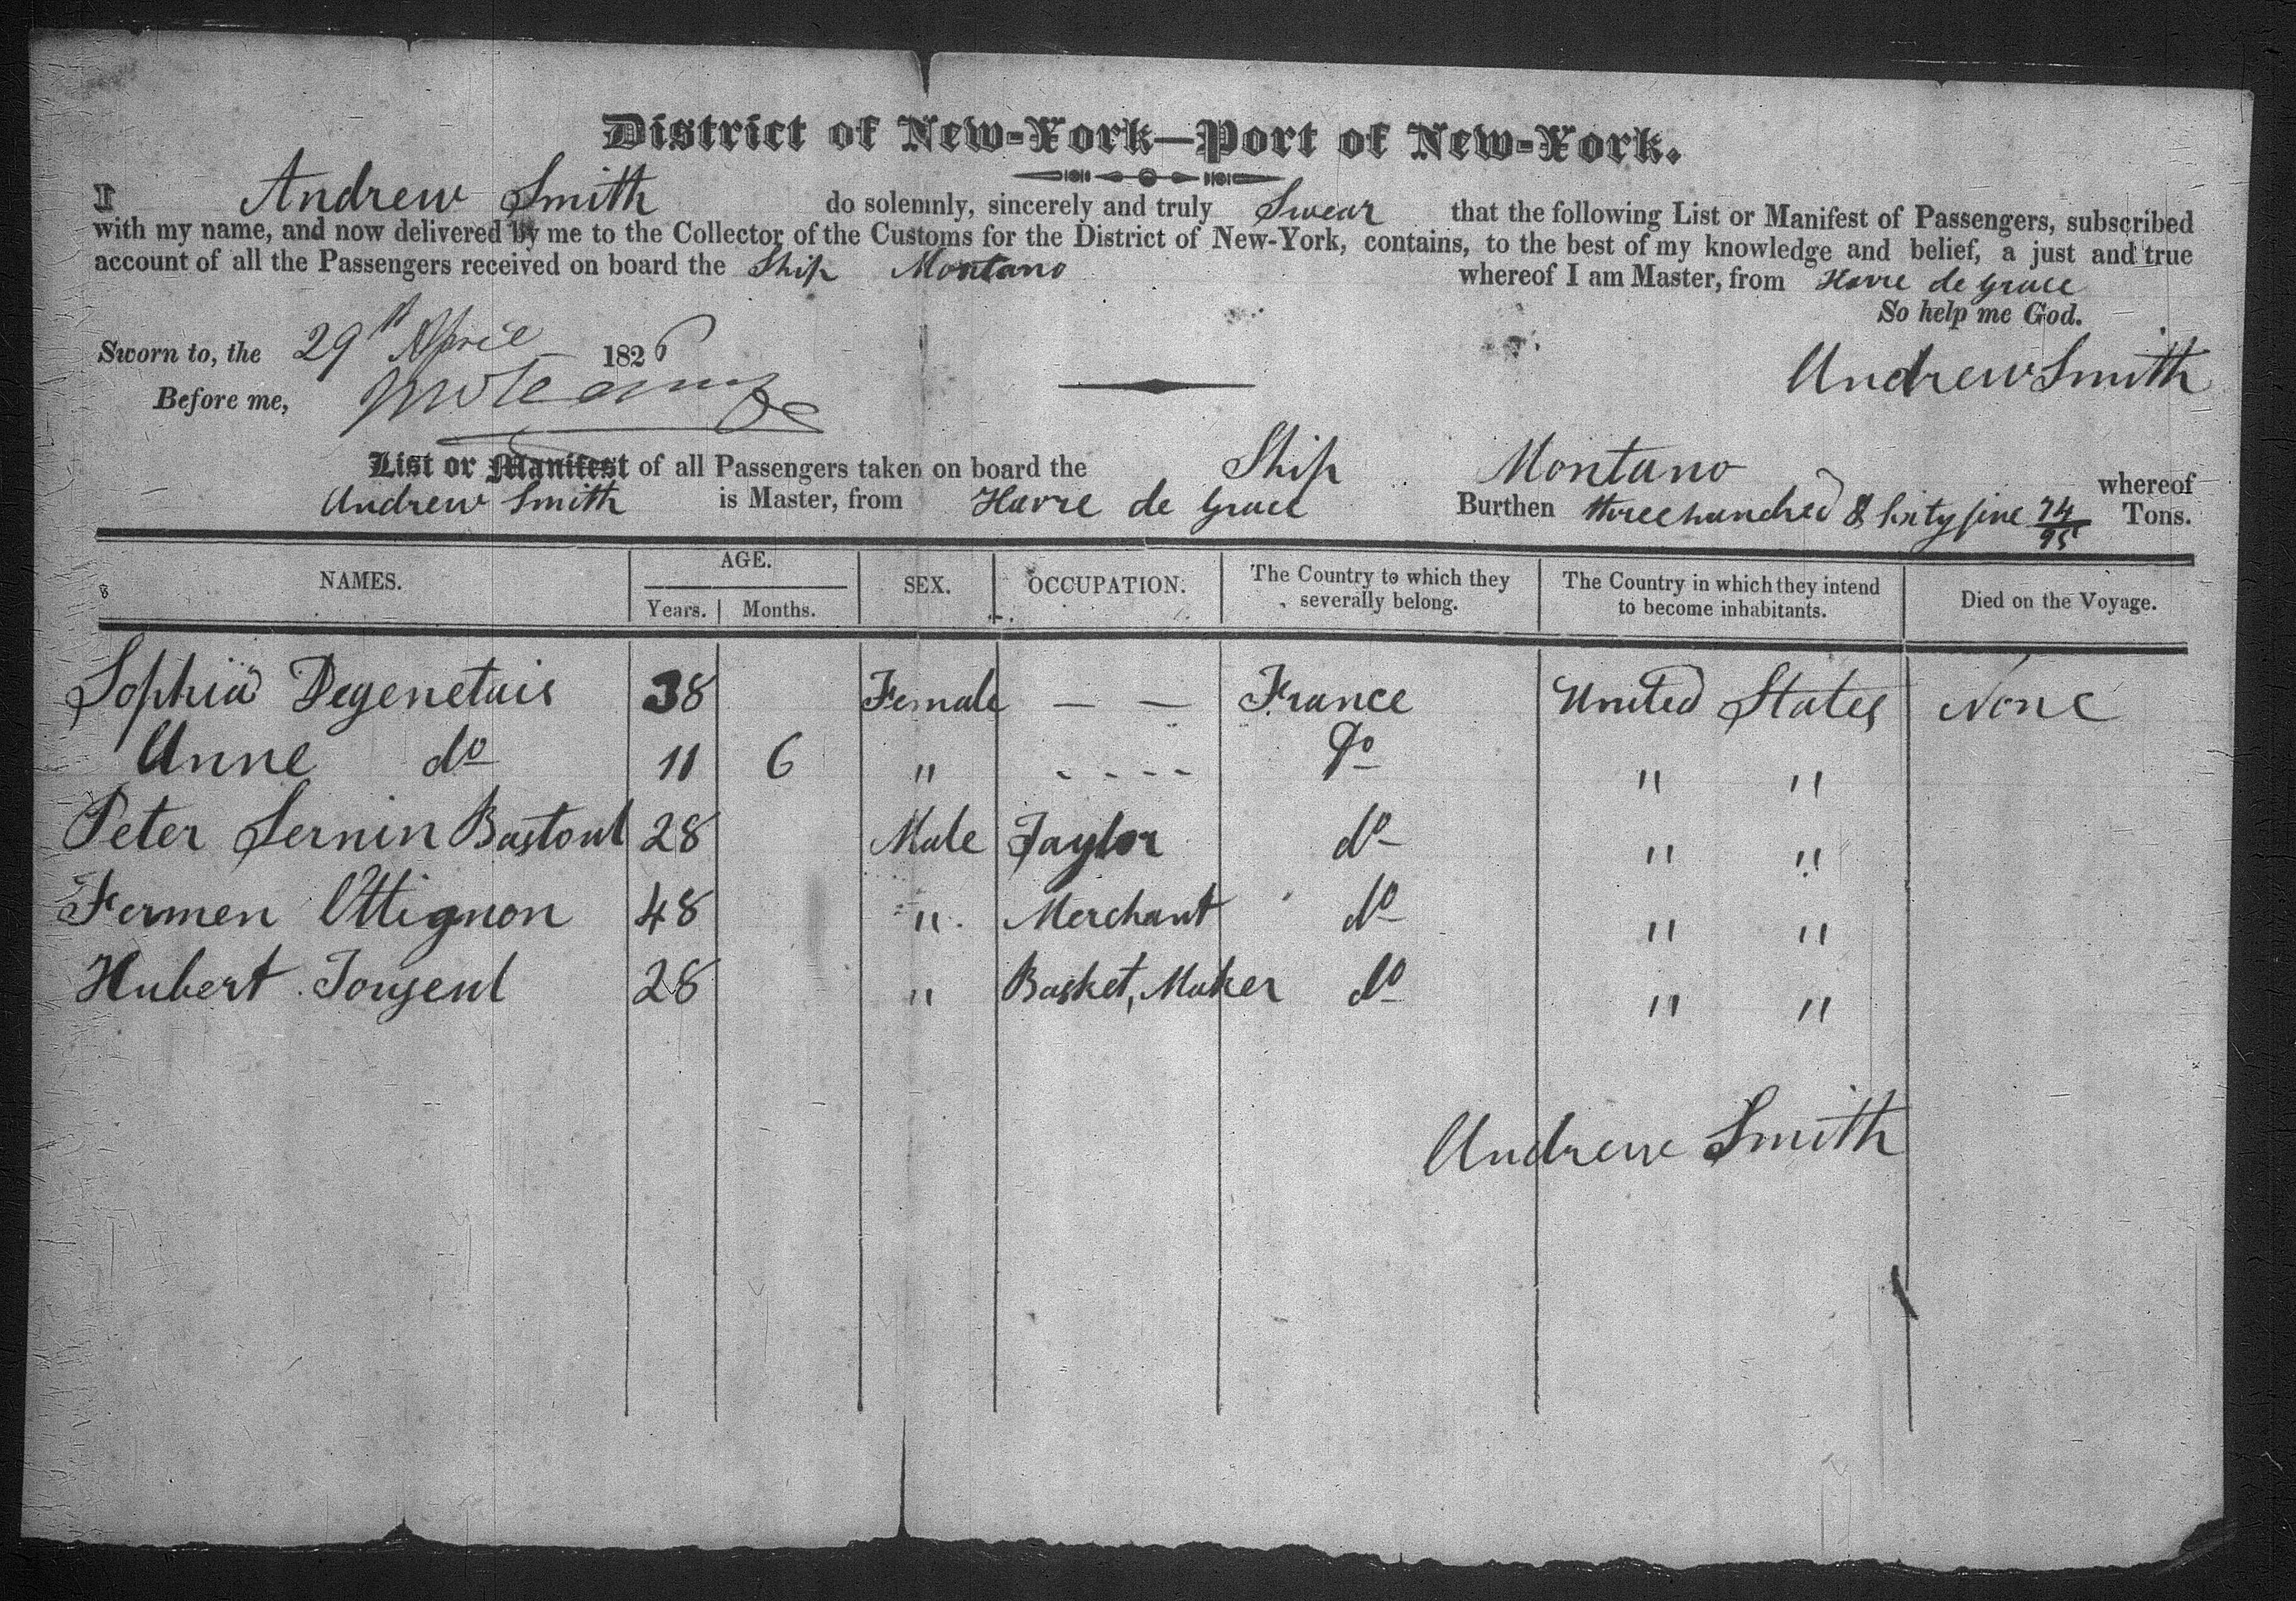 District of New-York—Port of New-York.
I Andrew Smith do solemnly, sincerely and truly Swear that the following List or Manifest of Passengers, subscribed
with my name, and now delivered by me to the Collector of the Customs for the District of New-York, contains, to the best of my knowledge and belief, a just and true
account of all the Passengers received on board the Ship Montano whereof I am Master, from Havre de Grace
So help me God.
Sworn to, the 29th April 1826
Andrew Smith
Before me,
List or Manifest of all Passengers taken on board the Ship Montano whereof
Andrew Smith is Master, from Havre de Grace Burthen three hundred & sixty five 74/95 Tons.
NAMES. AGE. SEX. OCCUPATION. The Country to which they severally belong. The Country in which they intend to become inhabitants. Died on the Voyage.
8 Years. Months.
Sophia Degenetais 38 Female — — France United States None
Anne do 11 6 " - - - - Do " "
Peter Sernin Bastoul 28 Male Taylor do " "
Fermen Ottignon 48 " Merchant do " "
Hubert 28 " Basket, Maker do " "
Andrew Smith